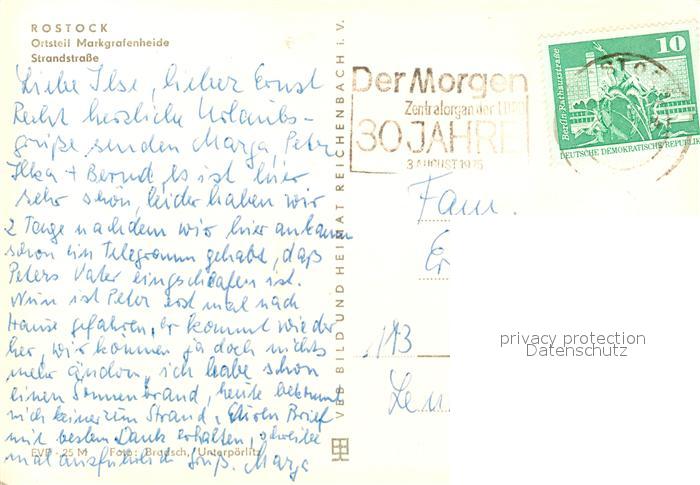 ROSTOCK
Ortsteil Markgrafenheide
Strandstraße
Liebe Ilse, lieber Ernst
Recht herzliche Urlaubs-
grüße senden Marga, Peter
Ilka + Bernd, Es ist hier
sehr schön, leider haben wir
2 Tage nachdem wir hier ankamen
schon ein Telegramm gehabt, daß
Peters Vater eingschlafen ist.
Nun ist Peter erst mal nach
Hause gefahren, er kommt wieder
her, wir können ja doch nichts
mehr ändern, ich habe schon
einen Sonnenbrand, heute bekommt
mich keiner zum Strand, Euren Brief
mit bestem Dank erhalten, schreibe
mal ausführlich Gruß. Marga
EVP -25 M Foto: Bradsch, Unterpörlitz
VEB BILD UND HEIMAT REICHENBACH i. V.
Der Morgen
Zentralorgan der LDPD
30 JAHRE
3. AUGUST 1975
10
Berlin, Rathausstraße
DEUTSCHE DEMOKRATISCHE REPUBLIK
Fam.
193
privacy protection
Datenschutz